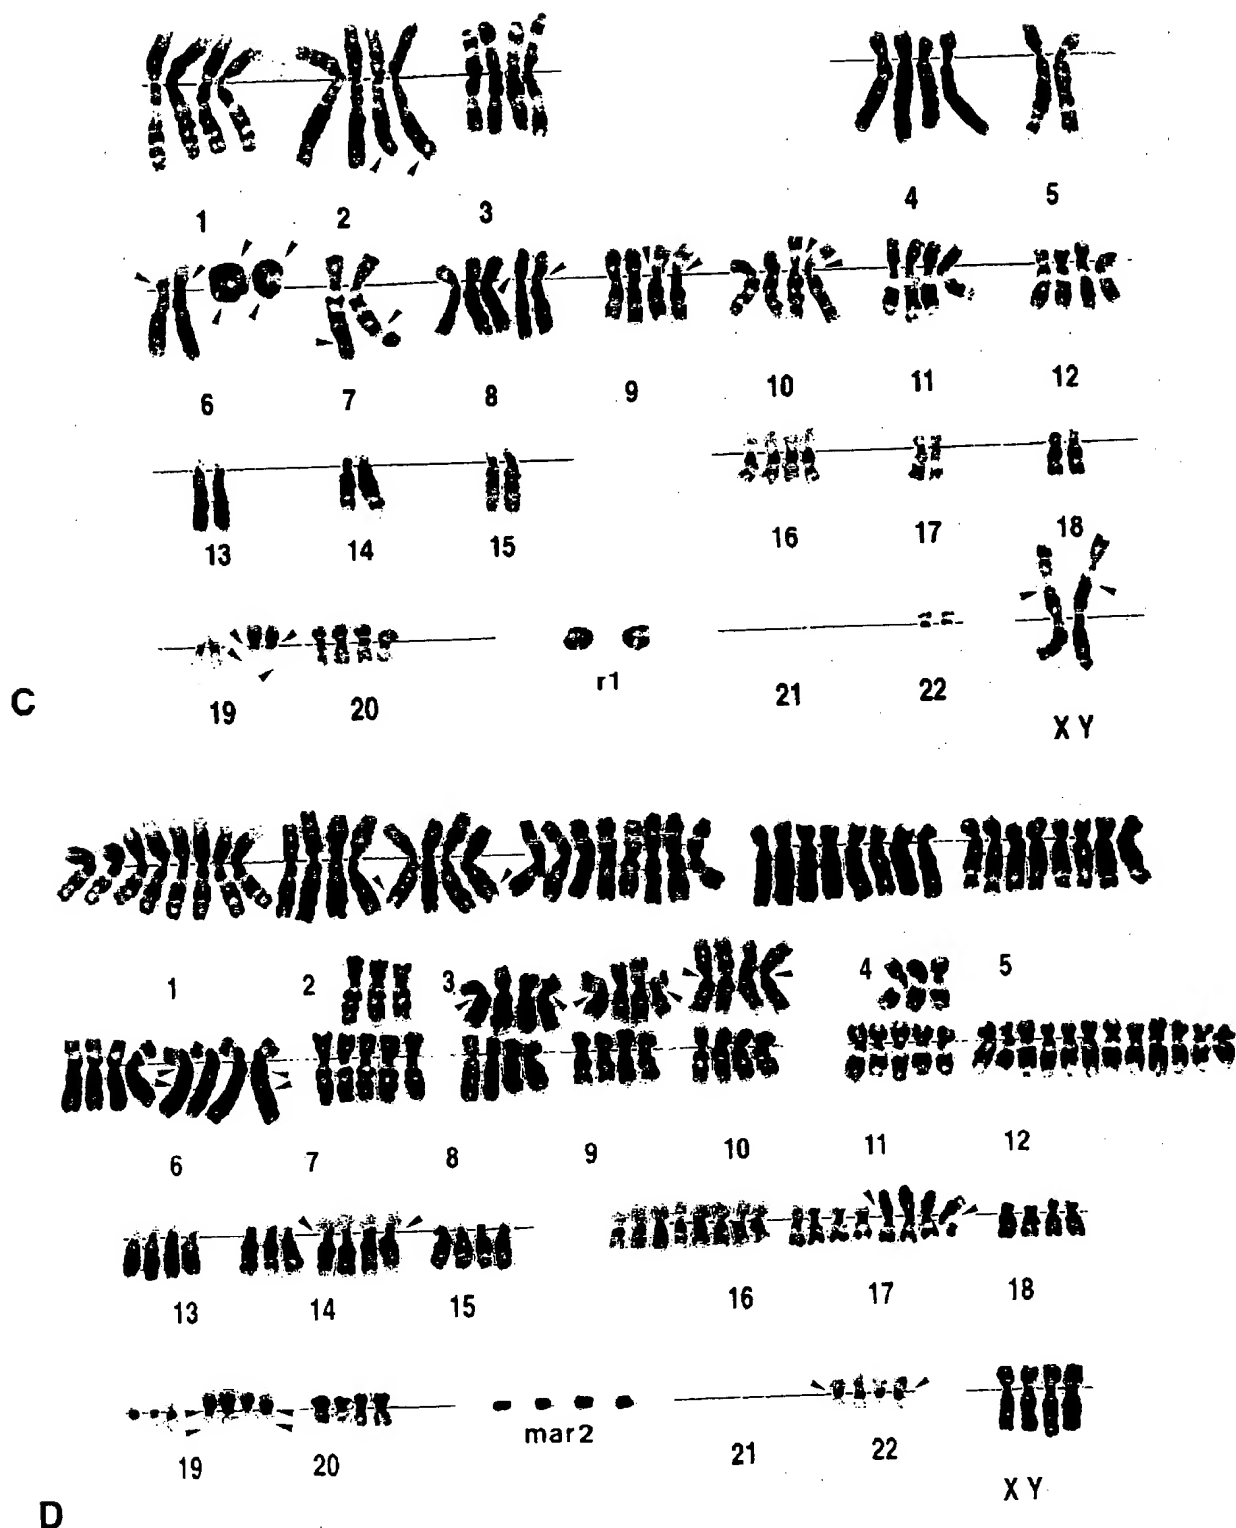 1 2 3 4 5
6 7 8 9 10 11 12
13 14 15 16 17 18
19 20 r1 21 22 X Y
C
1 2 3 4 5
6 7 8 9 10 11 12
13 14 15 16 17 18
19 20 mar2 21 22 X Y
D